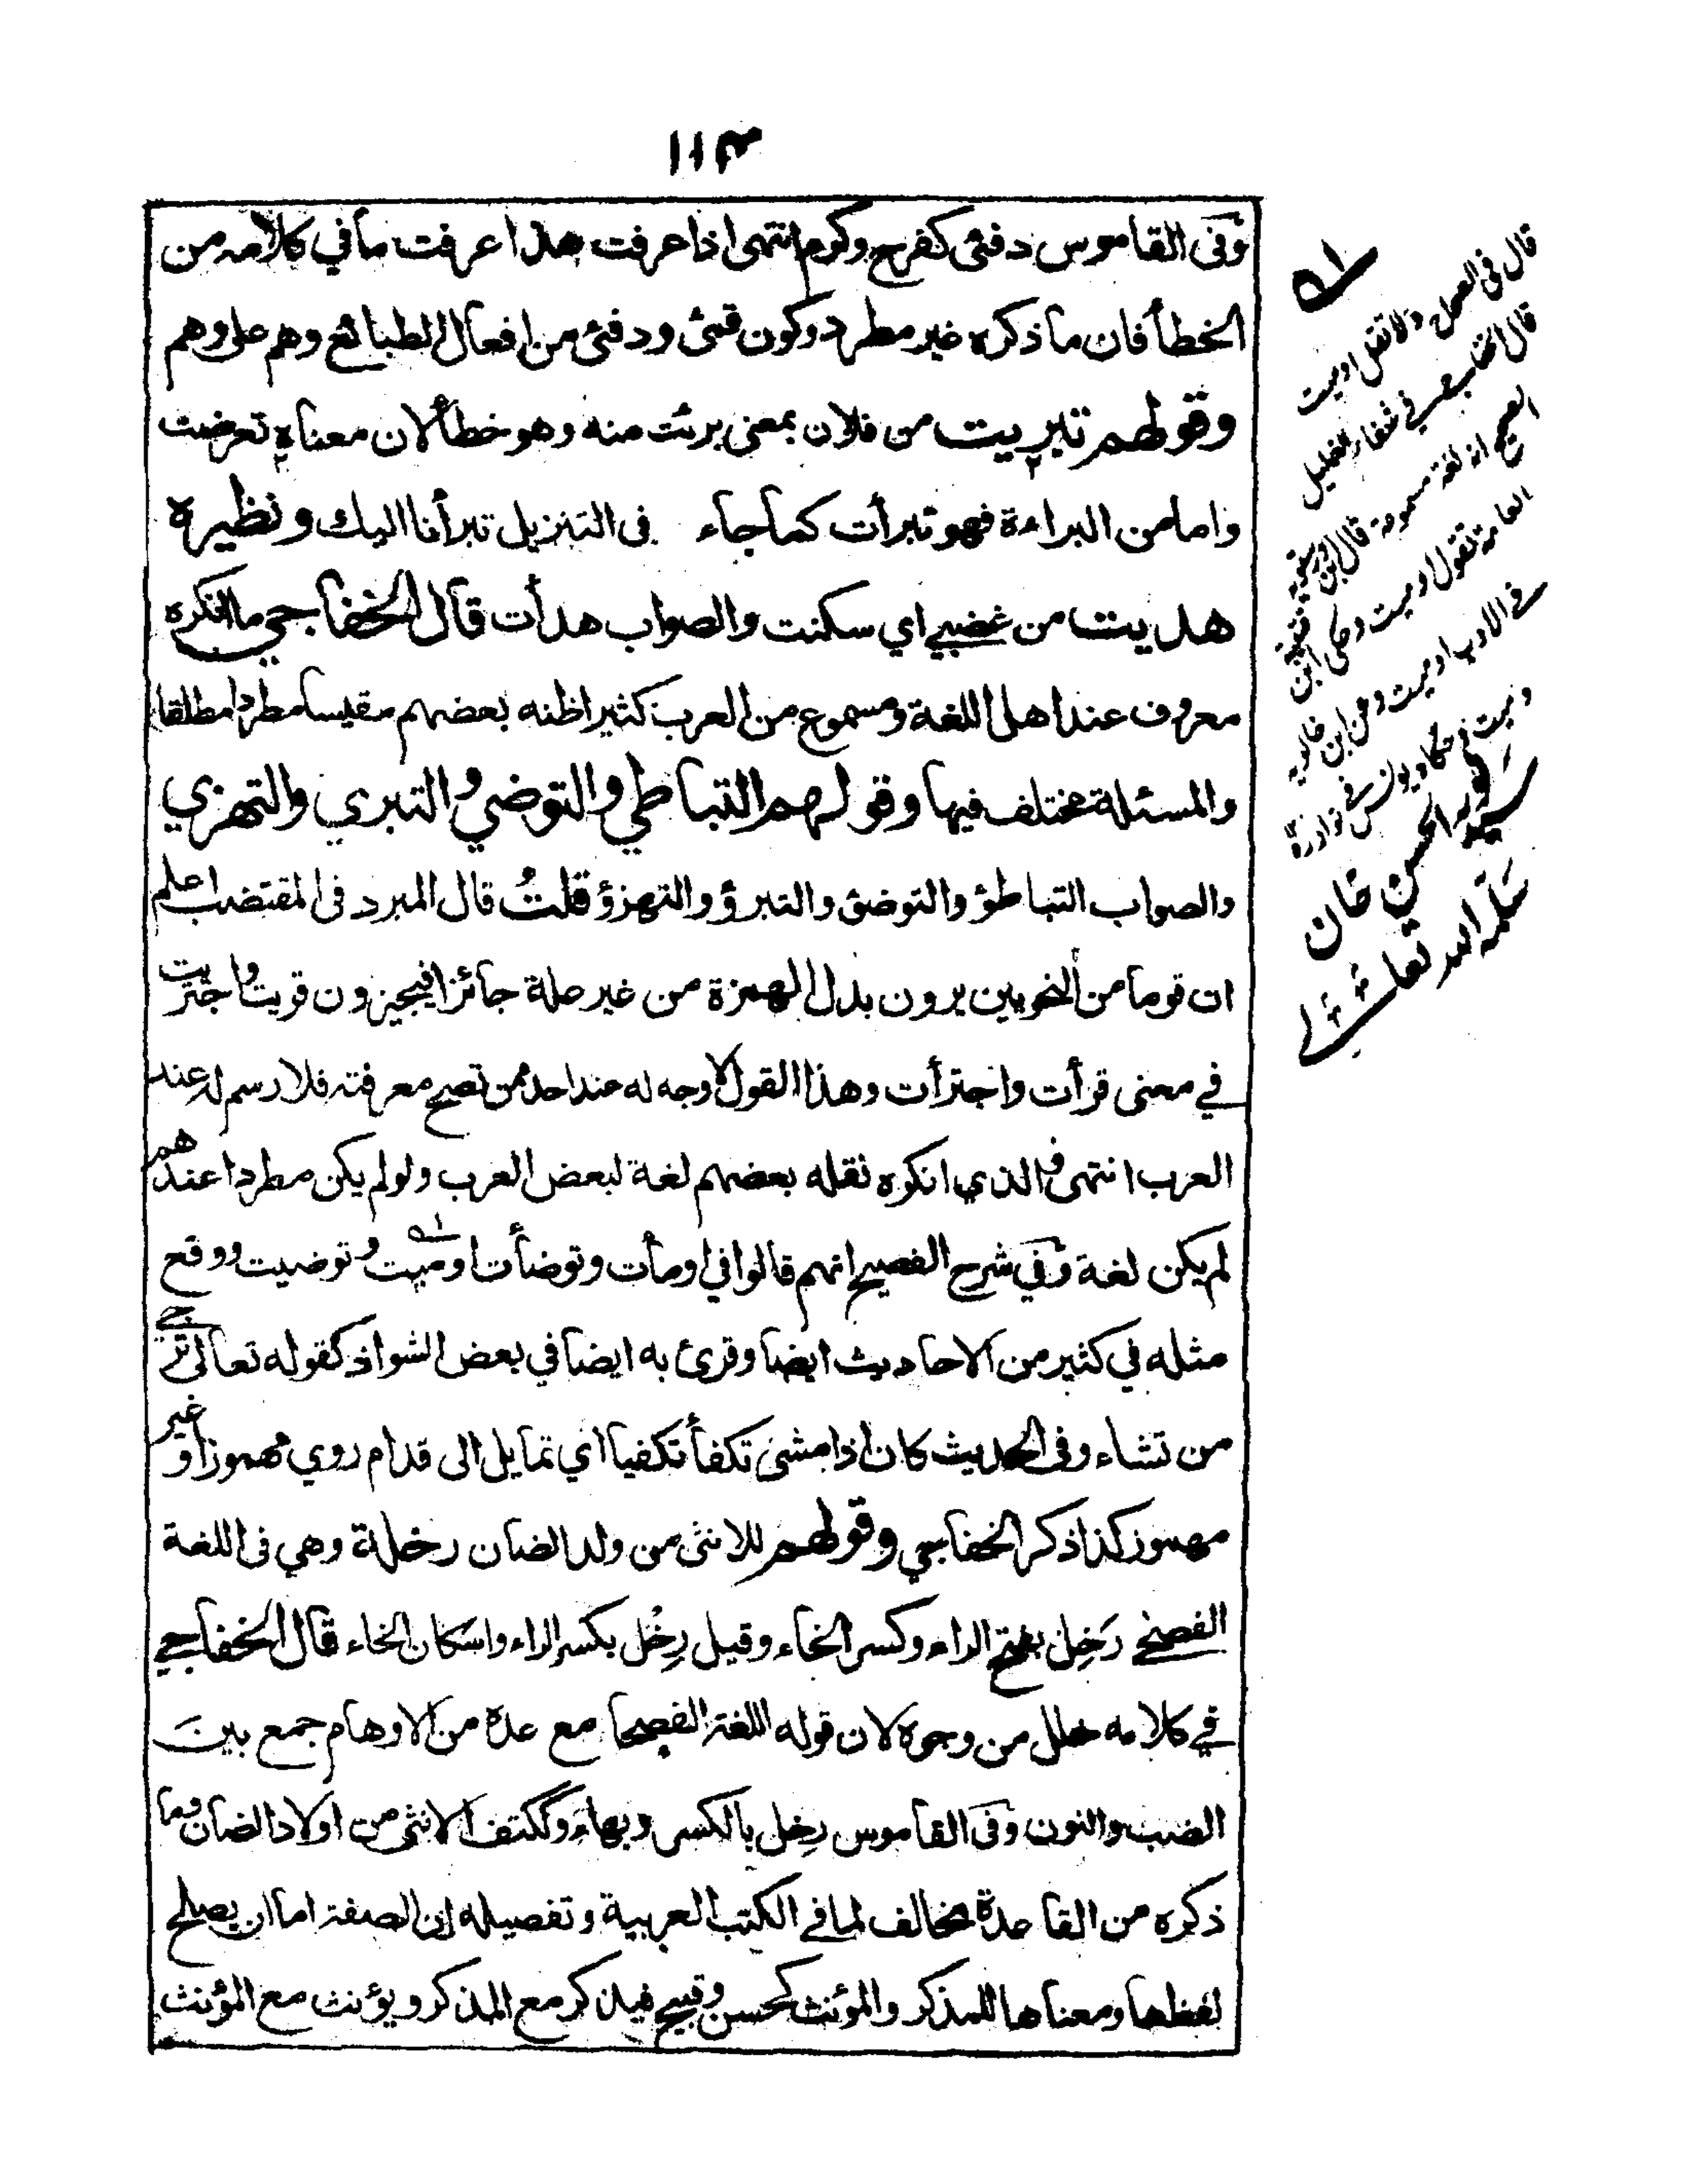 ١١٣
وفى القاموس دفئ كفرح وكرم انتهى اذا عرفت هذا عرفت ما في كلامه من
الخطأ فان ما ذكره غير مطرد وكون قمئ ودفئ من افعال الطبائع وهم على وهم
وقولهم تبريت من فلان بمعنى برئت منه وهو خطأ لان معناه تعرضت
واما من البراءة فهو تبرأت كما جاء فى التنزيل تبرأنا اليك ونظيره
هديت من غضبي اي سكنت والصواب هدأت قال الخفاجي ما انكره
معروف عند اهل اللغة ومسموع من العرب كثيرا ظنه بعضهم مقيسا مطردا مطلقا
والمسئلة مختلف فيها وقولهم التباطي والتوضي والتبري والتهزي
والصواب التباطؤ والتوضئ والتبرؤ والتهزؤ قلتُ قال المبرد فى المقتضب اعلم
ان قوما من النحويين يرون بدل الهمزة من غير علة جائزا فيجيزون قريت واجتريت
في معنى قرأت واجترأت وهذا القول لا وجه له عند احد ممن تصح معرفته فلا رسم له عند
العرب انتهى فالذي انكره نقله بعضهم لغة لبعض العرب ولو لم يكن مطردا عندهم
لم يكن لغة وفي شرح الفصيح انهم قالوا في اومأت وتوضأت اوميت وتوضيت ووقع
مثله في كثير من الاحاديث ايضا وقرئ به ايضا في بعض الشواذ كقوله تعالى ترجي
من تشاء وفى الحديث كان اذا مشى تكفأ تكفيا اي تمايل الى قدام روي مهموزا وغير
مهموز كذا ذكر الخفاجي وقولهم للانثى من ولد الضان رخلة وهي فى اللغة
الفصحى رَخِل بفتح الراء وكسر الخاء وقيل رِخْل بكسر الراء واسكان الخاء قال الخفاجي
في كلامه خلل من وجوه لان قوله اللغة الفصحا مع عدة من الاوهام جمع بين
الضب والنون وفى القاموس رخل بالكسر وبهاء وككتف الانثى من اولاد الضان وما
ذكره من القاعدة مخالف لما في الكتب العربية وتفصيله ان الصفة اما ان يصلح
لفظها ومعناها للمذكر والمؤنث كحسن وقبيح فيذكر مع المذكر ويؤنث مع المؤنث
قال فى ولا تقل اوميت
قال الخفاجي في شفاء الغليل
الصحيح انه لغة مسموعة قال ابن
العامة تقول اوميت وحكى ابن قتيبة
في الادب اوميت وعن ابن خالويه
وميت في نوادره
سيد نور الحسن خان
سلمه الله تعالى